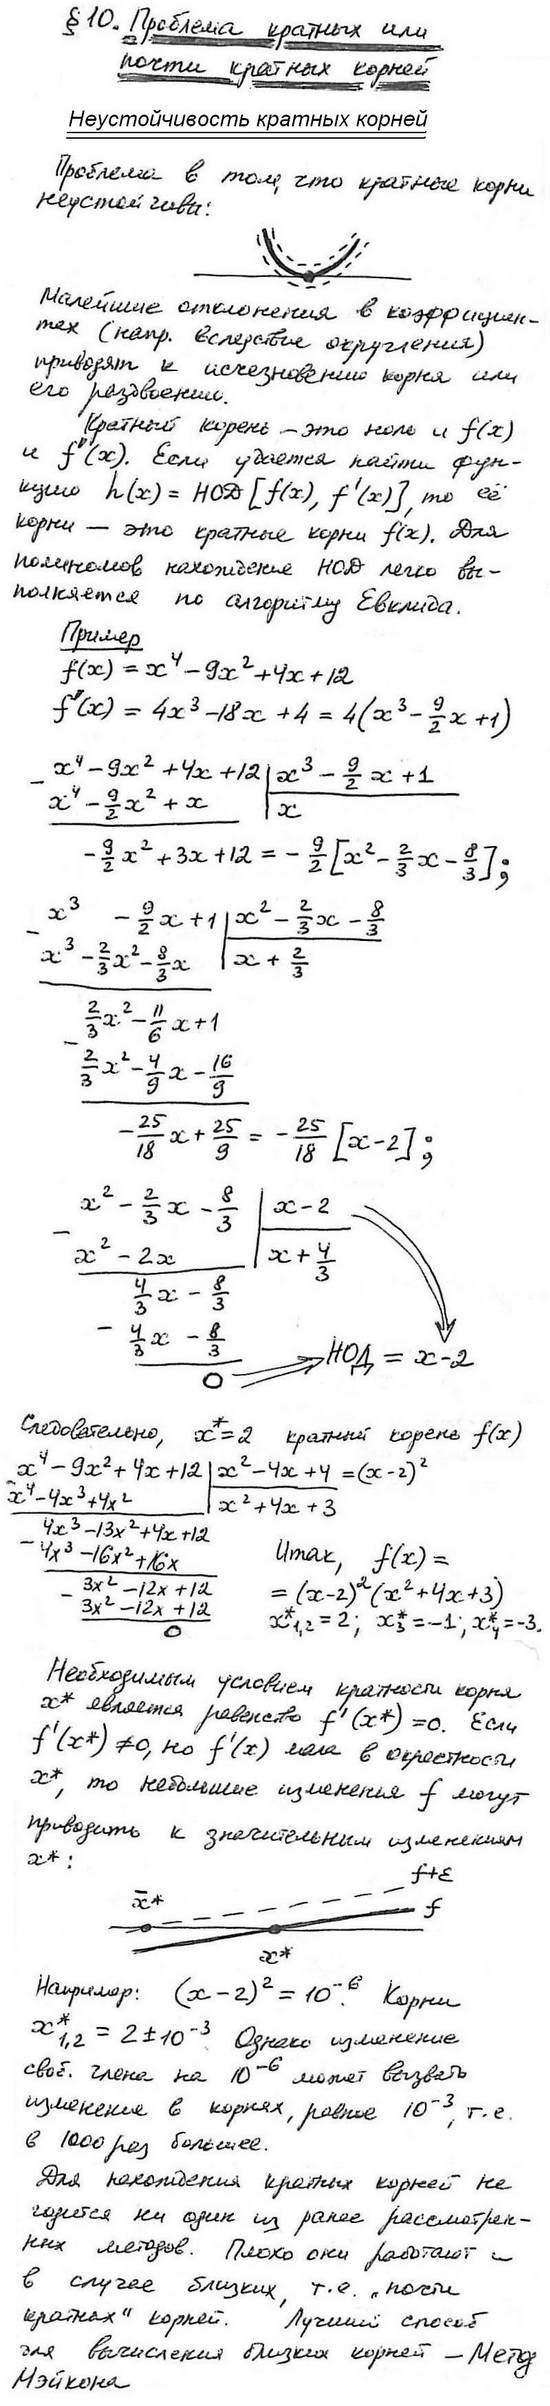 §10. Проблема кратных или
почти кратных корней
Неустойчивость кратных корней
Проблема в том, что кратные корни
неустойчивы:
Малейшие отклонения в коэффициен-
тах (напр. вследствие округления)
приводят к исчезновению корня или
его раздвоению.
Кратный корень – это ноль и f(x)
и f'(x). Если удается найти фун-
кцию h(x) = НОД [f(x), f'(x)], то её
корни – это кратные корни f(x). Для
полиномов нахождение НОД легко вы-
полняется по алгоритму Евклида.
Пример
f(x) = x⁴ - 9x² + 4x + 12
f'(x) = 4x³ - 18x + 4 = 4(x³ - 9/2 x + 1)
x⁴ - 9x² + 4x + 12 | x³ - 9/2 x + 1
- x⁴ - 9/2 x² + x | x
- 9/2 x² + 3x + 12 = - 9/2 [x² - 2/3 x - 8/3];
x³ - 9/2 x + 1 | x² - 2/3 x - 8/3
- x³ - 2/3 x² - 8/3 x | x + 2/3
2/3 x² - 11/6 x + 1
- 2/3 x² - 4/9 x - 16/9
- 25/18 x + 25/9 = - 25/18 [x - 2];
x² - 2/3 x - 8/3 | x - 2
- x² - 2x | x + 4/3
4/3 x - 8/3
- 4/3 x - 8/3
0 НОД = x - 2
Следовательно, x* = 2 кратный корень f(x)
x⁴ - 9x² + 4x + 12 | x² - 4x + 4 = (x-2)²
- x⁴ - 4x³ + 4x² | x² + 4x + 3
4x³ - 13x² + 4x + 12
- 4x³ - 16x² + 16x Итак, f(x) =
3x² - 12x + 12 = (x-2)²(x² + 4x + 3)
- 3x² - 12x + 12 x*₁,₂ = 2; x*₃ = -1; x*₄ = -3.
0
Необходимым условием кратности корня
x* является равенство f'(x*) = 0. Если
f'(x*) ≠ 0, но f'(x) мала в окрестности
x*, то небольшие изменения f могут
приводить к значительным изменениям
x*:
f+ε
x̄* f
x*
Например: (x-2)² = 10⁻⁶. Корни
x*₁,₂ = 2 ± 10⁻³. Однако изменение
своб. члена на 10⁻⁶ может вызвать
изменение в корнях, равное 10⁻³, т.е.
в 1000 раз большее.
Для нахождения кратных корней не
годится ни один из ранее рассмотрен-
ных методов. Плохо они работают и
в случае близких, т.е. „почти
кратных" корней. Лучший способ
для вычисления близких корней – Метод
Мэйкона